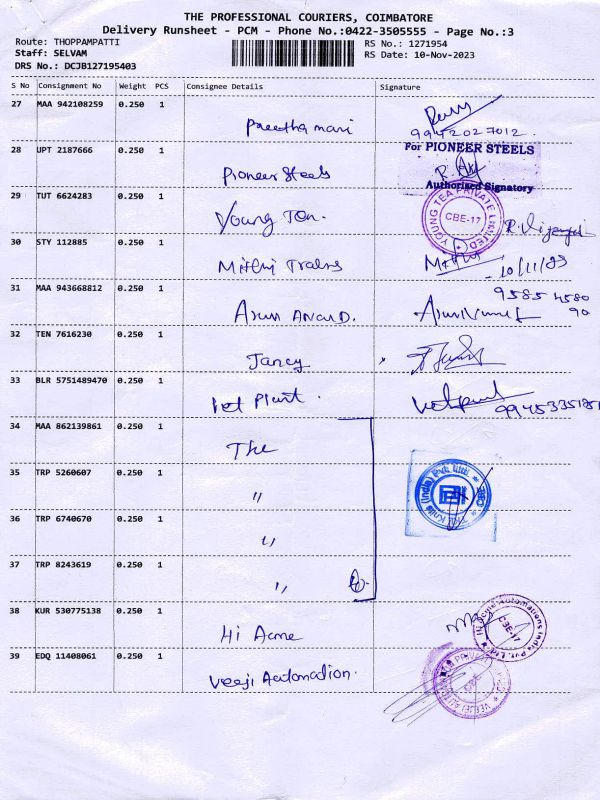 THE PROFESSIONAL COURIERS, COIMBATORE
Delivery Runsheet - PCM - Phone No.:0422-3505555 - Page No.:3
Route: THOPPAMPATTI
RS No.: 1271954
Staff: SELVAM
RS Date: 10-Nov-2023
DRS No.: DCJB127195403
S No Consignment No Weight PCS Consignee Details Signature
27 MAA 942108259 0.250 1
Preetha mani
28 UPT 2187666 0.250 1
For PIONEER STEELS
Pioneer Steels
Authorised Signatory
29 TUT 6624283 0.250 1
Young Ten.
YOUNG TEA PRIVATE LIMITED
CBE-17
30 STY 112885 0.250 1
Mithu
10/11/23
31 MAA 943668812 0.250 1
95854580
90
Arun Anand.
32 TEN 7616230 0.250 1
Jancy
33 BLR 5751489470 0.250 1
Vet Plant.
34 MAA 862139861 0.250 1
The
35 TRP 5260607 0.250 1
"
(India) Pvt. Ltd.
36 TRP 6740670 0.250 1
"
37 TRP 8243619 0.250 1
"
38 KUR 530775138 0.250 1
Hi Acme
Hi Acme Automations India Pvt. Ltd
CBE-17
39 EDQ 11408061 0.250 1
Veeji Automation.
CBE